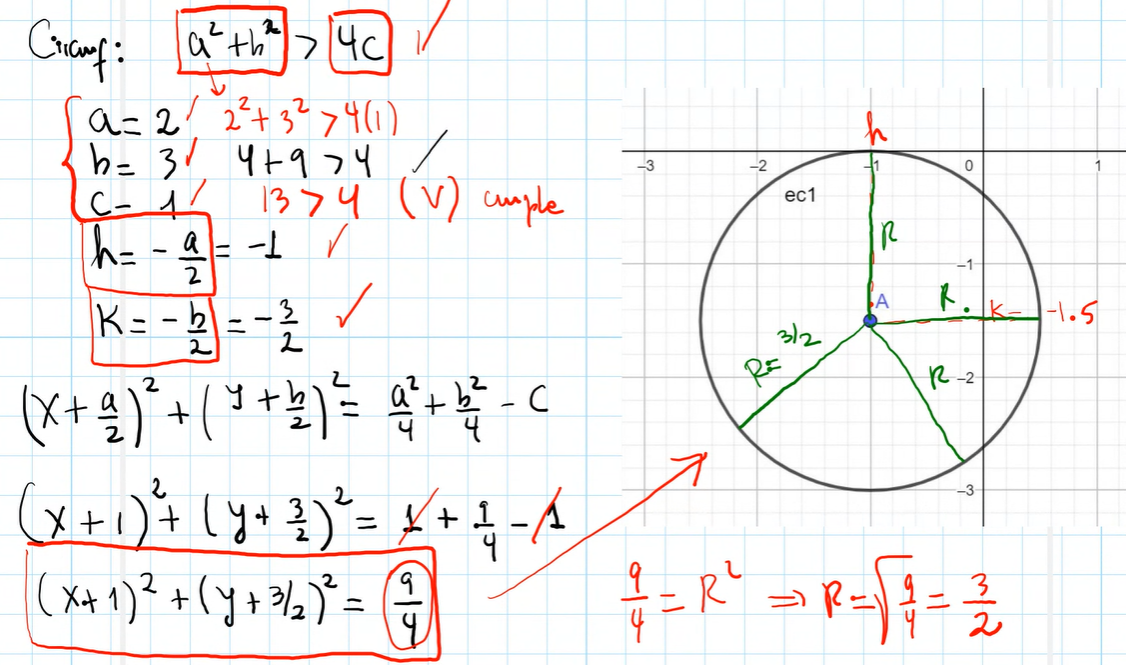 Circunf: a² + b² > 4c ✓
a = 2 ✓ 2² + 3² > 4(1)
b = 3 ✓ 4 + 9 > 4 ✓
c = 1 ✓ 13 > 4 (V) cumple
h = -a/2 = -1 ✓
K = -b/2 = -3/2 ✓
(x + a/2)² + (y + b/2)² = a²/4 + b²/4 - c
(x + 1)² + (y + 3/2)² = 1 + 9/4 - 1
(x + 1)² + (y + 3/2)² = 9/4
h
-3 -2 -1 0 1
ec1
R
-1
A
R K -1.5
R = 3/2
R -2
-3
9/4 = R² ⟹ R = √(9/4) = 3/2